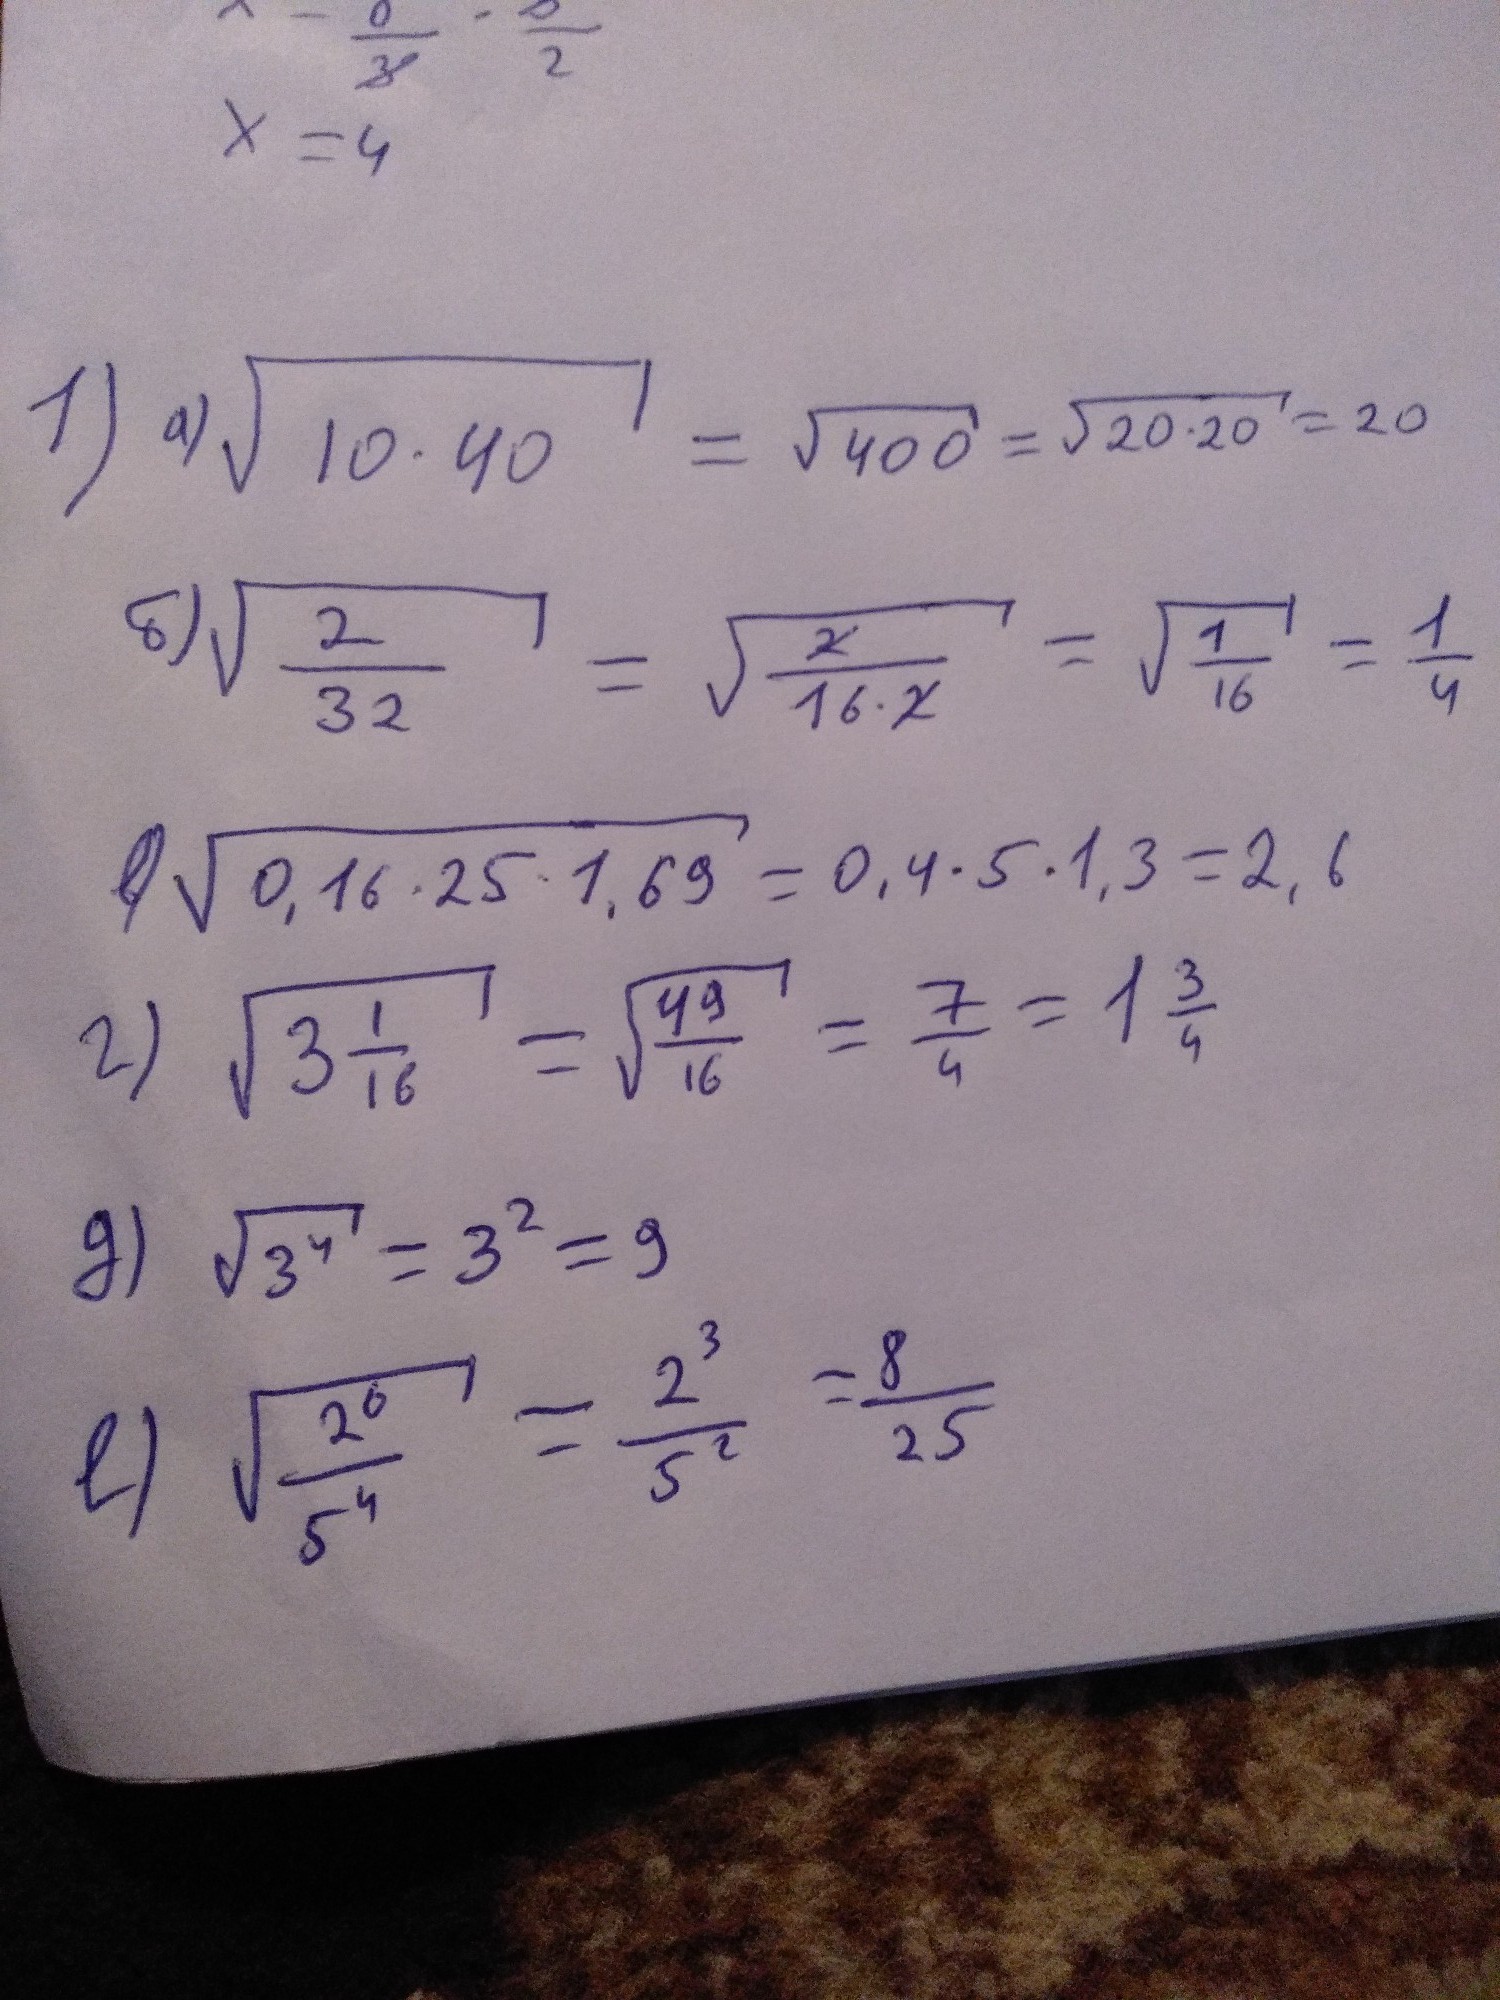 x = 4
1) а) √(10·40) = √400 = √(20·20) = 20
б) √(2/32) = √(2/(16·2)) = √(1/16) = 1/4
в) √(0,16·25·1,69) = 0,4·5·1,3 = 2,6
г) √(3 1/16) = √(49/16) = 7/4 = 1 3/4
д) √(3⁴) = 3² = 9
е) √(2⁶/5⁴) = 2³/5² = 8/25